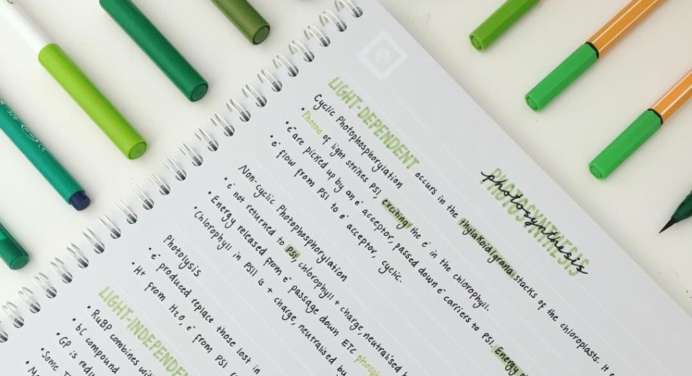 PHOTOSYNTHESIS
Photosynthesis
LIGHT-DEPENDENT occurs in the thylakoid/grana stacks of the chloroplasts. It
Cyclic Photophosphorylation
• Photons of light strikes PSI, exciting the e⁻ in the chlorophyll.
• e⁻ are picked up by an e⁻ acceptor, passed down e⁻ carriers to PSI. Energy
• e⁻ flow from PSI to e⁻ acceptor, cyclic.
Non-Cyclic Photophosphorylation
• e⁻ not returned to PSII chlorophyll + charge, neutralised
• Energy released from e⁻ passage down ETC
• Chlorophyll in PSII is + charge, neutralised by
Photolysis
• e⁻ produced replace those lost in
• H⁺ from H₂O, e⁻ from PSI
LIGHT-INDEPENDENT
• RuBP combines with
• 6C compound
• GP is
• Some